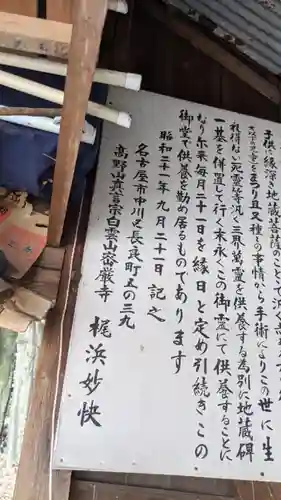 子供に縁深き地蔵菩薩の
さざる児童を弔う且又種々の事情から手術によりこの世に生
祖様ない死霊等汎く三界萬霊を供養する為別に地蔵碑
一基を併置して行く末永くこの御霊にて供養することに
なり尓来毎月二十一日を縁日と定め引続きこの
御堂で供養を勤め居るものであります
昭和三十一年九月二十一日 記之
名古屋市中川区長良町五の三九
高野山真言宗白雲山密厳寺
梶浜妙快